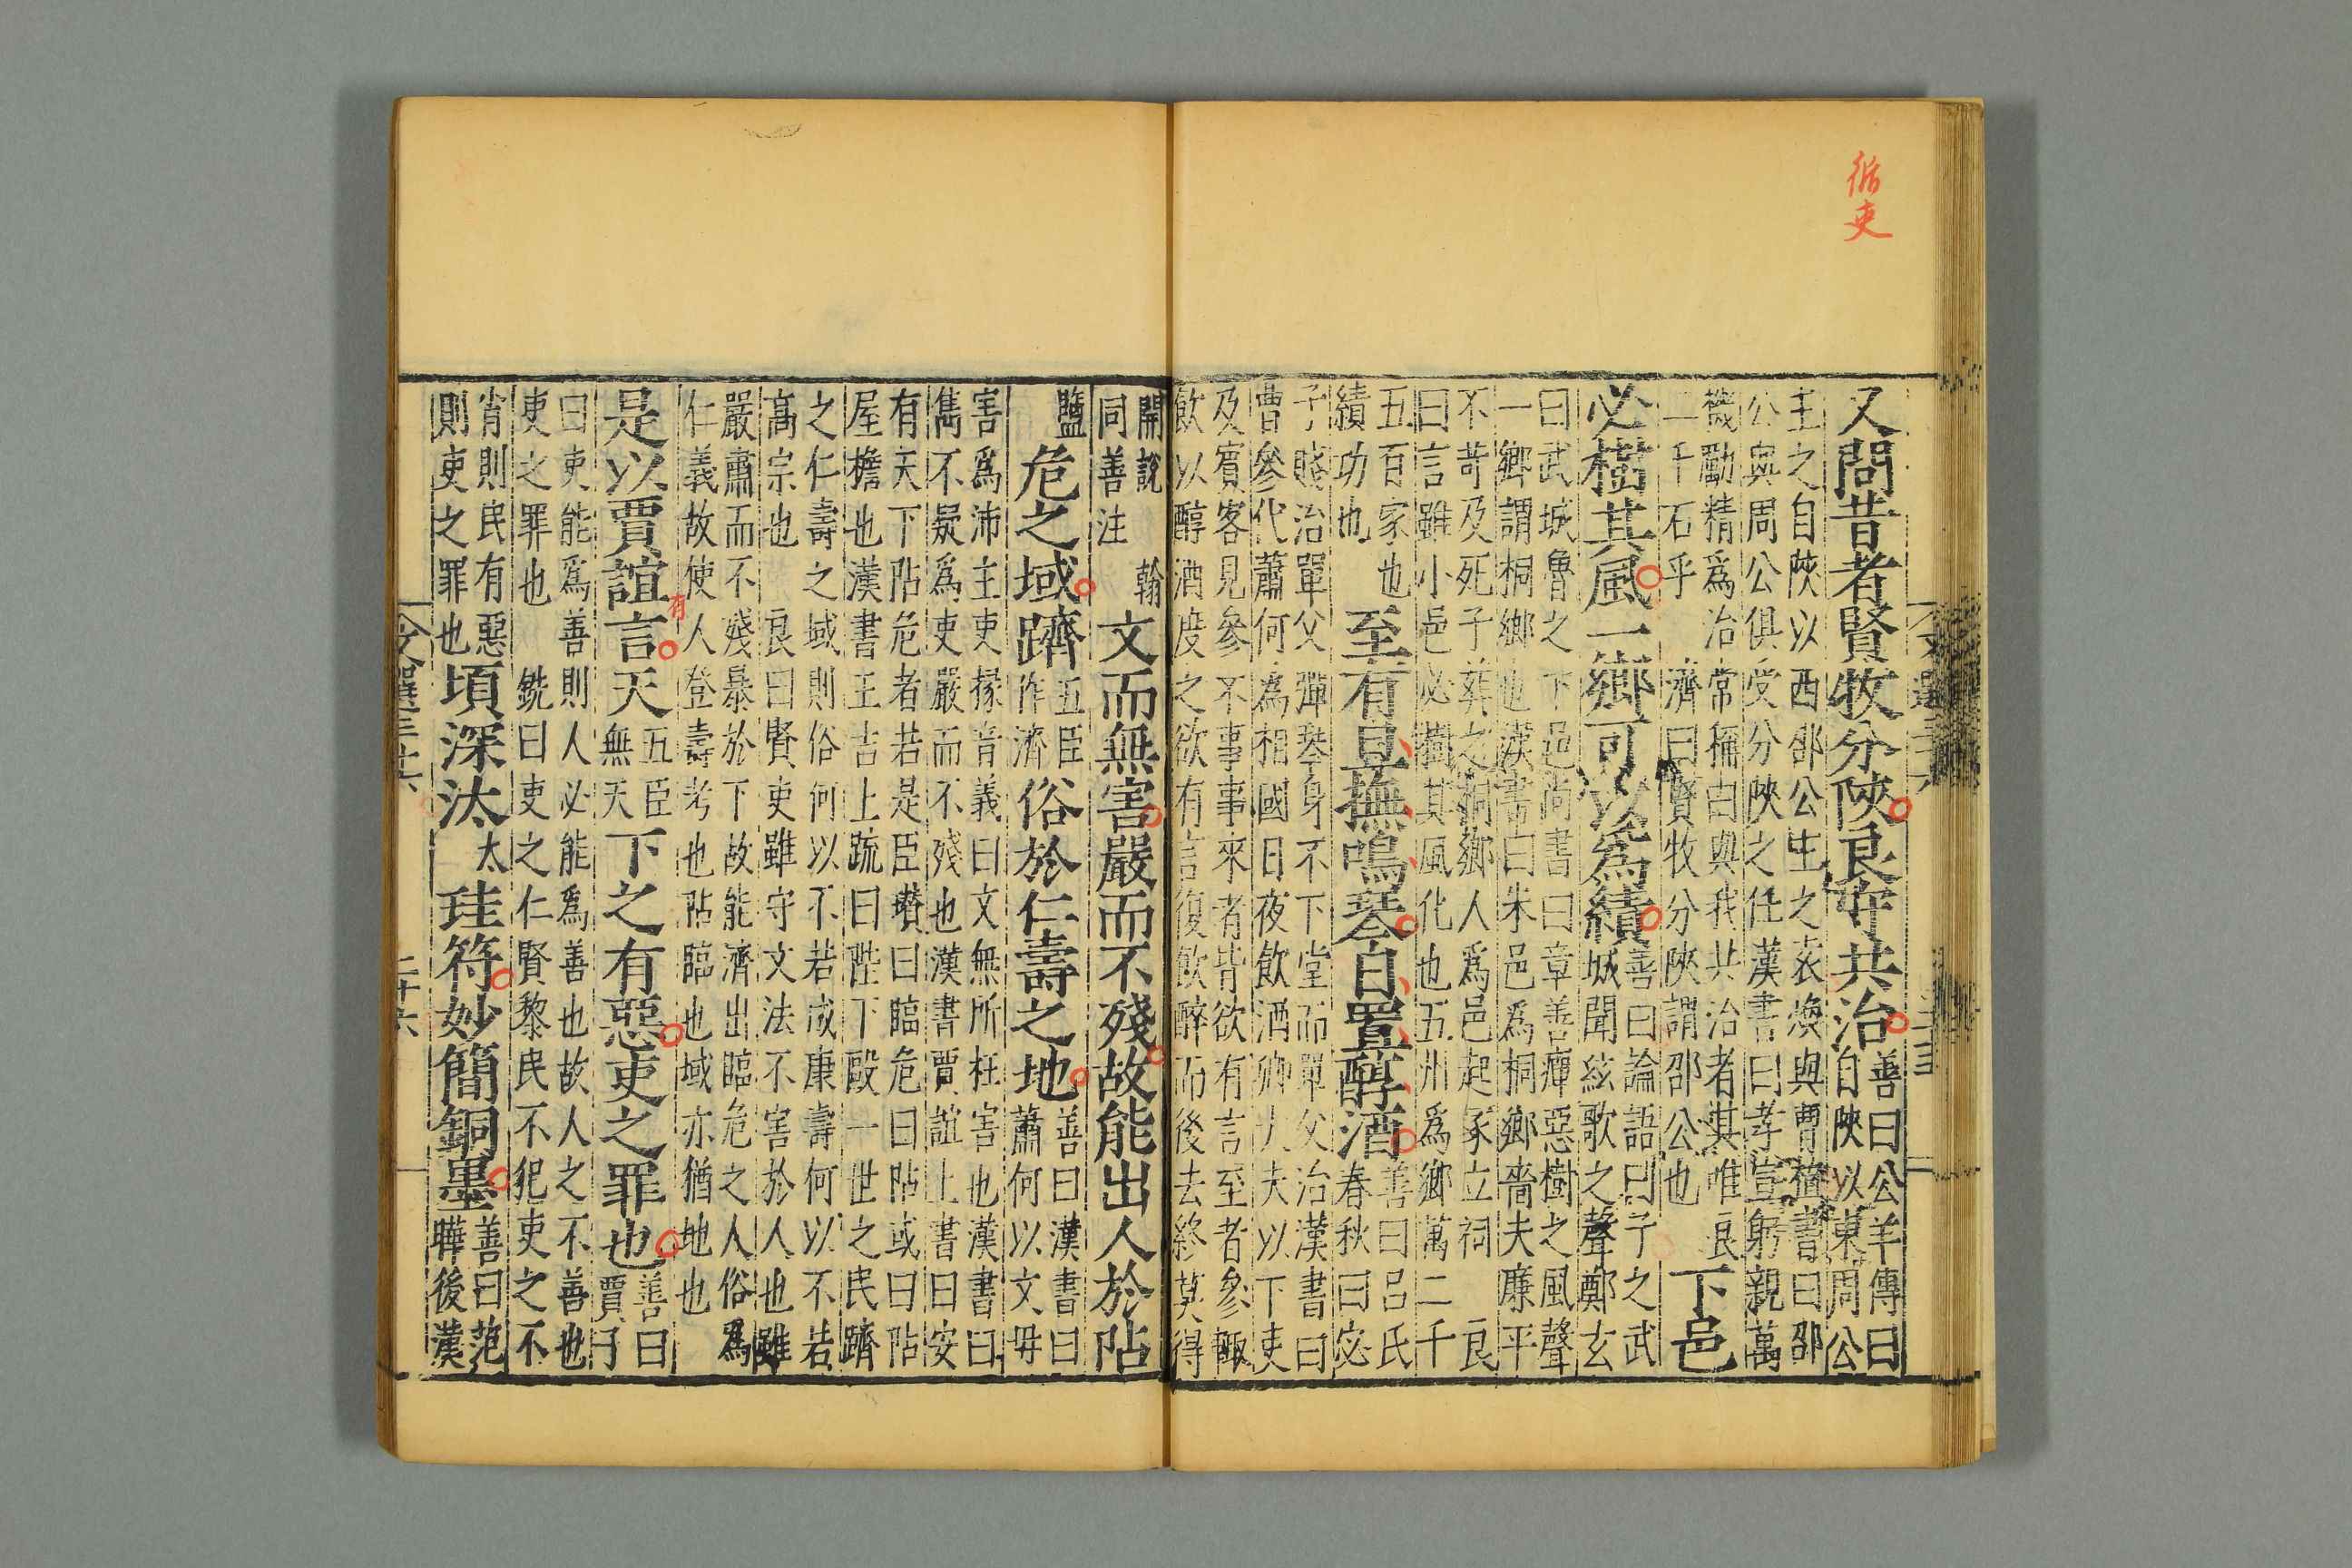 循吏
又問昔者賢牧分陜良守共治善曰公羊傳曰
自陜以東周公
主之自陜以西邵公主之袁煥與曹植書曰邵
公與周公俱受分陜之任漢書曰孝宣躬親萬
機勵精爲治常稱曰與我共治者其唯良
二千石乎 濟曰賢牧分陜謂邵公也下邑
必樹其風一鄉可以爲績善曰論語曰子之武
城聞絃歌之聲鄭玄
曰武城魯之下邑尚書曰章善癉惡樹之風聲
一鄉謂桐鄉也漢書曰朱邑爲桐鄉嗇夫廉平
不苛及死子葬之桐鄉人爲邑起冢立祠 良
曰言雖小邑必樹其風化也五州爲鄉萬二千
五百家也
績功也至有旦撫鳴琴日置醇酒善曰吕氏
春秋曰宓
子賤治單父彈琴身不下堂而單父治漢書曰
曹參代蕭何爲相國日夜飲酒卿大夫以下吏
及賓客見參不事事來者皆欲有言至者參輙
飲以醇酒度之欲有言復飲醉而後去終莫得
開說 翰
同善注文而無害嚴而不殘故能出人於阽
鹽危之域躋五臣
作濟俗於仁壽之地善曰漢書曰
蕭何以文毋
害爲沛主吏掾音義曰文無所枉害也漢書曰
雋不疑爲吏嚴而不殘也漢書賈誼上書曰安
有天下阽危者若是臣瓚曰臨危曰阽或曰阽
屋檐也漢書王吉上疏曰陛下敺一世之民躋
之仁壽之域則俗何以不若成康壽何以不若
高宗也 良曰賢吏雖守文法不害於人也雖
嚴肅而不殘暴於下故能濟出臨危之人俗爲
仁義故使人登壽考也阽臨也域亦猶地也
有
是以賈誼言天五臣
無天下之有惡吏之罪也善曰
賈子
曰吏能爲善則人必能爲善也故人之不善也
吏之罪也 銑曰吏之仁賢黎民不犯吏之不
肖則民有惡
則吏之罪也頃深汰太珪符妙簡銅墨善曰范
曄後漢
文選三十六
二十六